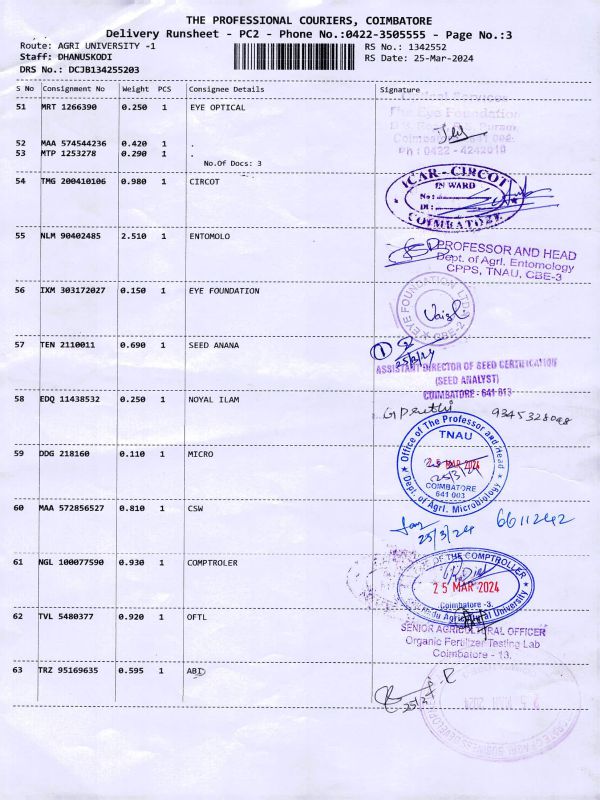 THE PROFESSIONAL COURIERS, COIMBATORE
Delivery Runsheet - PC2 - Phone No.:0422-3505555 - Page No.:3
Route: AGRI UNIVERSITY -1 RS No.: 1342552
Staff: DHANUSKODI RS Date: 25-Mar-2024
DRS No.: DCJB134255203
S No Consignment No Weight PCS Consignee Details Signature
51 MRT 1266390 0.250 1 EYE OPTICAL
The Eye Foundation
52 MAA 574544236 0.420 1 .
53 MTP 1253278 0.290 1 .
Ph : 0422 - 4242010
No.Of Docs: 3
54 TMG 200410106 0.980 1 CIRCOT
ICAR - CIRCOT
IN WARD
No :
Dt :
COIMBATORE
55 NLM 90402485 2.510 1 ENTOMOLO
PROFESSOR AND HEAD
Dept. of Agrl. Entomology
CPPS, TNAU, CBE-3
56 IXM 303172027 0.150 1 EYE FOUNDATION
EYE FOUNDATION LTD
CBE-2
57 TEN 2110011 0.690 1 SEED ANANA
1
25/3/24
ASSISTANT DIRECTOR OF SEED CERTIFICATION
(SEED ANALYST)
COIMBATORE - 641 013
58 EDQ 11438532 0.250 1 NOYAL ILAM
59 DDG 218160 0.110 1 MICRO
Office of The Professor and Head
TNAU
25 MAR 2024
25/3/24
COIMBATORE
641 003
Dept. of Agrl. Microbiology
60 MAA 572856527 0.810 1 CSW
25/3/24 6611242
61 NGL 100077590 0.930 1 COMPTROLER
OF THE COMPTROLLER
25 MAR 2024
Coimbatore -3.
62 TVL 5480377 0.920 1 OFTL
SENIOR AGRICULTURAL OFFICER
Organic Fertilizer Testing Lab
Coimbatore - 13.
63 TRZ 95169635 0.595 1 ABD